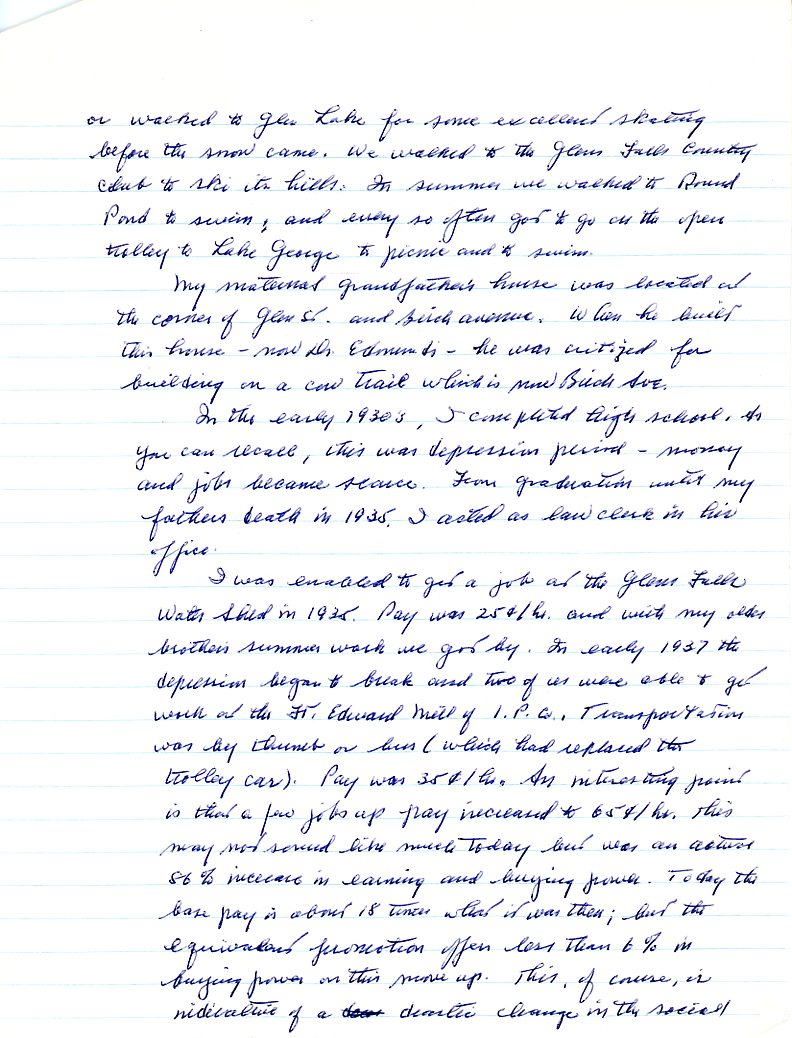 or walked to Glen Lake for some excellent skating
before the snow came. We walked to the Glens Falls Country
Club to ski its hills. In summer we walked to Round
Pond to swim; and every so often got to go on the open
trolley to Lake George to picnic and to swim.
My maternal grandfathers house was located at
the corner of Glen St. and Birch avenue. When he built
this house - now Dr. Edmunds - he was critized for
building on a cow trail which is now Birch Ave.
In the early 1930s, I completed high school. As
you can recall, this was depression period - money
and jobs became scarce. From graduation until my
fathers death in 1935, I acted as law clerk in his
office.
I was enabled to get a job at the Glens Falls
Water Shed in 1935. Pay was 25¢/hr. and with my older
brothers summer work we got by. In early 1937 the
depression began to break and two of us were able to get
work at the Ft. Edward Mill of I.P. Co. Transportation
was by thumb or bus (which had replaced the
trolley car). Pay was 35¢/hr. An interesting point
is that a few jobs up pay increased to 65¢/hr. This
may not sound like much today but was an actual
86% increase in earning and buying power. Today the
base pay is about 18 times what it was then; but the
equivalent promotion offers less than 6% in
buying power on this move up. This, of course, is
indicative of a drastic change in the social